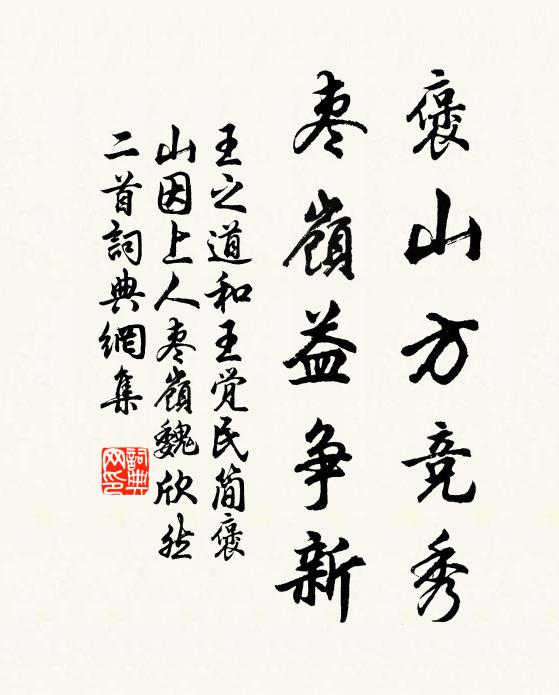 褒山方竞秀
枣嶺益争新
王之道和王觉民简褒
山因上人枣嶺魏欣然
二首詞典網集
詞典
网印